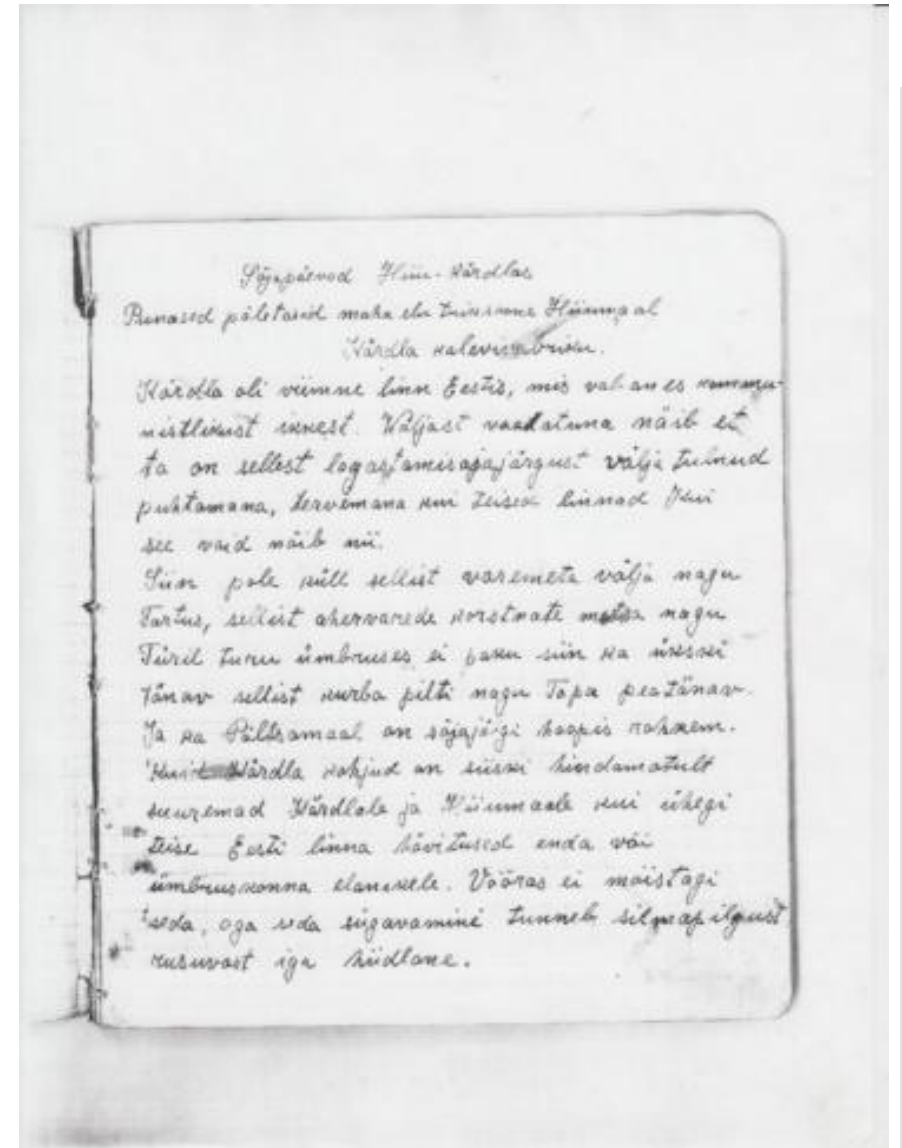 Sõjapäevad Hiiu-Kärdlas
Punased põletasid maha elu tuiksoone Hiiumaal
Kärdla kalevivabriku.
Kärdla oli viimne linn Eestis, mis vabanes kommu-
nistlikust ikkest. Väljast vaadatuna näib et
ta on sellest lagastamisajajärgust välja tulnud
puhtamana, tervemana kui teised linnad Kuid
see vaid näib nii.
Siin pole küll sellist varemete välja nagu
Tartus, sellist ahervarede korstnate metsa nagu
Türil turu ümbruses ei paku siin ka ükski
tänav sellist kurba pilti nagu Tapa peatänav.
Ja ka Põltsamaal on sõjajälgi hoopis rohkem.
Kuid Kärdla kahjud on siiski hindamatult
suuremad Kärdlale ja Hiiumaale kui ühegi
teise Eesti linna hävitused enda või
ümbruskonna elanikele. Võõras ei mõistagi
seda, aga seda sügavamini tunneb silmapilgust
rusuvast iga hiidlane.